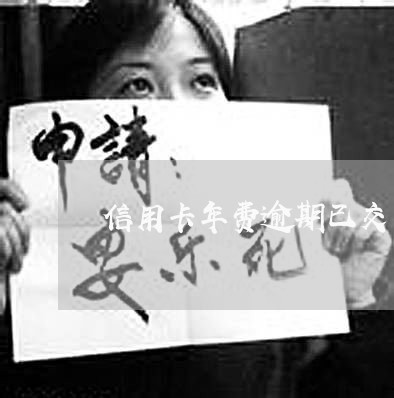 申請：
信用卡年费逾期已交
安乐死